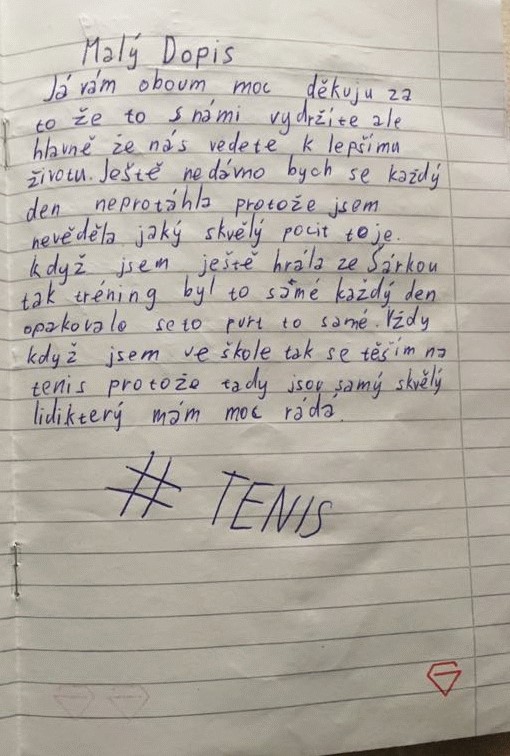 Malý Dopis
Já vám oboum moc děkuju za
to že to s námi vydržíte ale
hlavně že nás vedete k lepšímu
životu. Ještě nedávno bych se každý
den neprotáhla protože jsem
nevěděla jaký skvělý pocit to je.
když jsem ještě hrála ze Šárkou
tak tréning byl to samé každý den
opakovalo se to purt to samé. Vždy
když jsem ve škole tak se těším na
tenis protože tady jsou samý skvělý
lidi který mám moc ráda.
# TENIS